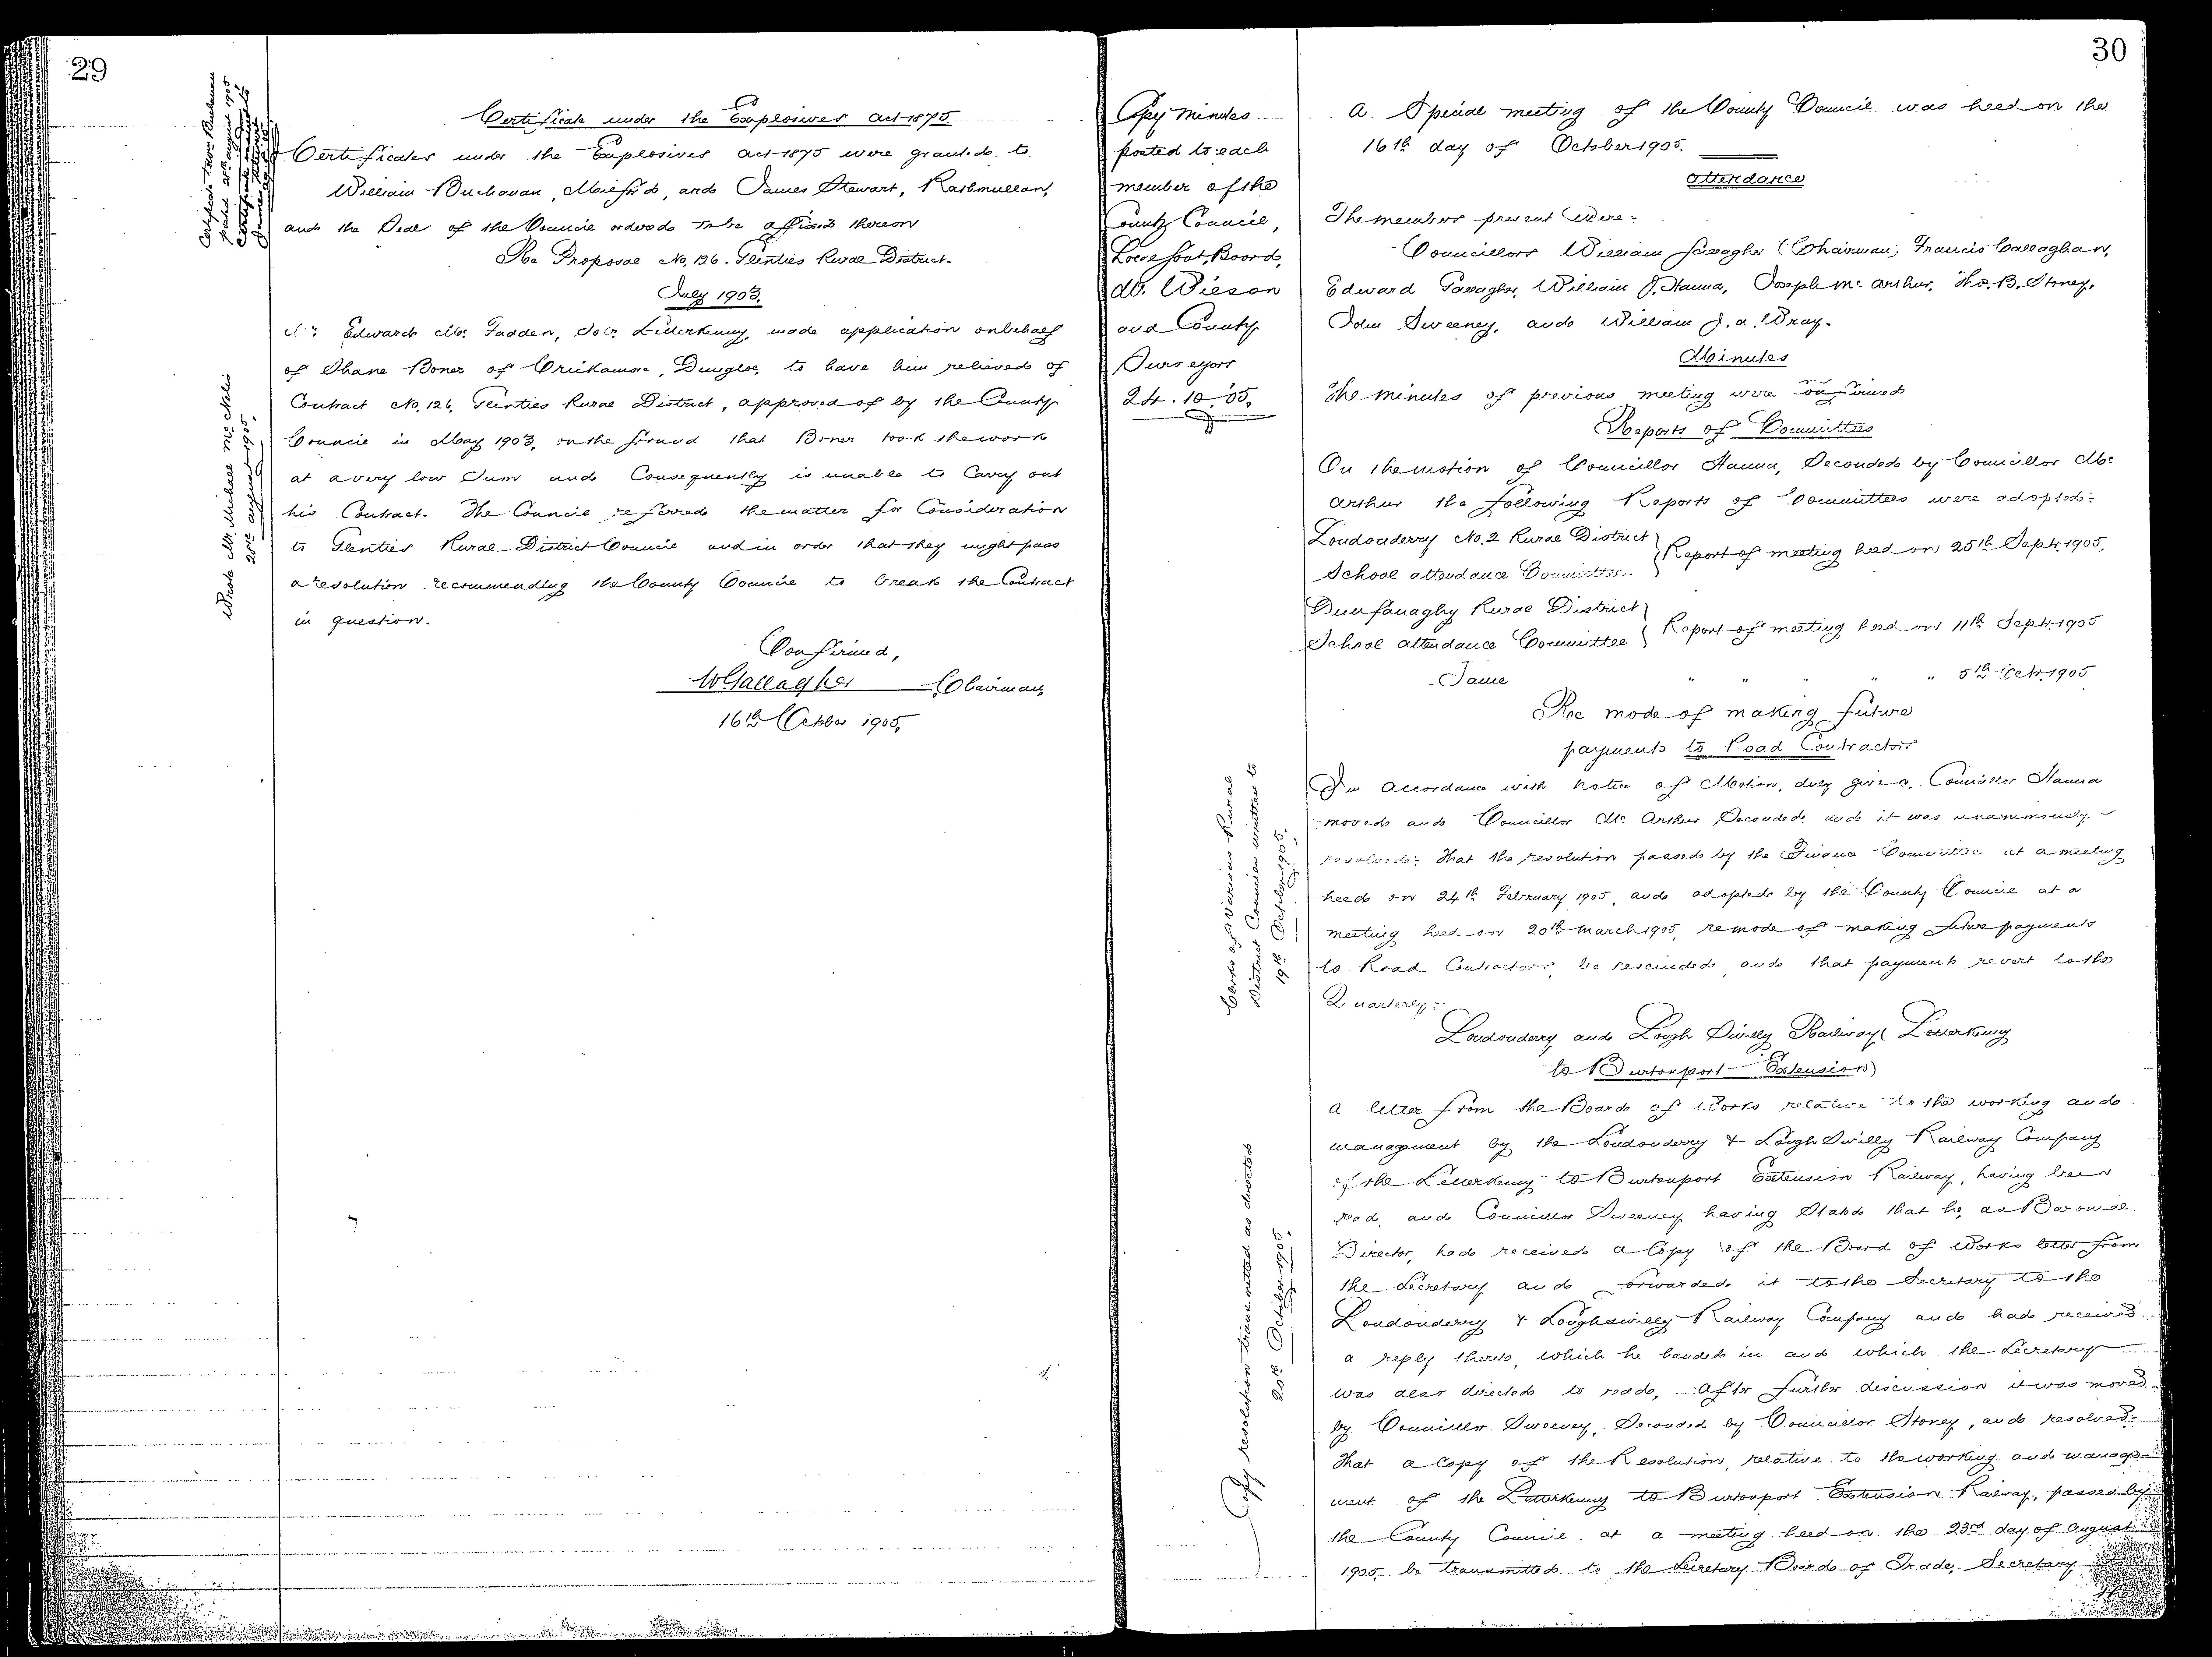 29
Certificate under the Explosives Act 1875
Certificates under the Explosives Act 1875 were granted to
William Buchanan, Milford, and James Stewart, Rathmullan,
and the Seal of the Council ordered to be affixed thereon
Re Proposal No. 126 - Glenties Rural District -
July 1903.
Mr Edward Mc Fadden, Solr. Letterkenny, made application on behalf
of Shane Boner of Crickamore, Dungloe, to have him relieved of
Contract No. 126, Glenties Rural District, approved of by the County
Council in May 1903, on the ground that Boner took the work
at a very low Sum and Consequently is unable to Carry out
his Contract. The Council referred the matter for Consideration
to Glenties Rural District Council and in order that they might pass
a resolution recommending the County Council to break the Contract
in question.
Confirmed,
W Gallagher Chairman
16th October 1905.
Wrote Mr. Michael Mc Nelis
28th August 1905.
30
Copy Minutes
posted to each
member of the
County Council,
Local Govt. Board,
do. Wilson
and County
Surveyors
24.10.05.
A Special meeting of the County Council was held on the
16th day of October 1905.
Attendance
The members present were:-
Councillors William Gallagher (Chairman, Francis Callaghan,
Edward Gallagher, William J. Hanna, Joseph Mc Arthur, Thos. B. Stoney,
John Sweeney, and William J. A. Wray.
Minutes
The minutes of previous meeting were confirmed
Reports of Committees
On the motion of Councillor Hanna, Seconded by Councillor Mc
Arthur the following Reports of Committees were adopted:-
Londonderry No. 2 Rural District
School Attendance Committee. } Report of meeting held on 25th Sept. 1905.
Dunfanaghy Rural District
School Attendance Committee } Report of meeting held on 11th Sept. 1905
Same " " " " " 5th Oct. 1905
Re mode of making future
payments to Road Contractors
In Accordance with Notice of Motion, duly given, Councillor Hanna
moved and Councillor Mc Arthur Seconded and it was unanimously
resolved:- That the resolution passed by the Finance Committee at a meeting
held on 24th February 1905, and adopted by the County Council at a
meeting held on 20th March 1905, re mode of making future payments
to Road Contractors, be rescinded and that payments revert to the
Quarterly:-
Clerks of various Rural
District Councils written to
19th October 1905.
Londonderry and Lough Swilly Railway (Letterkenny
to Burtonport Extension)
A letter from the Board of Works relative to the working and
management by the Londonderry & Lough Swilly Railway Company
of the Letterkenny to Burtonport Extension Railway, having been
read, and Councillor Sweeney having Stated that he, as Baronial
Director, had received a Copy of the Board of Works letter from
the Secretary and forwarded it to the Secretary to the
Londonderry & Loughswilly Railway Company and had received
a reply thereto, which he handed in and which the Secretary
was also directed to read, After further discussion it was moved
by Councillor Sweeney, Seconded by Councillor Stoney, and resolved:-
That a Copy of the Resolution, relative to the working and manage-
ment of the Letterkenny to Burtonport Extension Railway, passed by
the County Council at a meeting held on the 23rd day of August
1905, be transmitted to the Secretary Board of Trade, Secretary
the
Copy resolution transmitted as directed
20th October 1905.